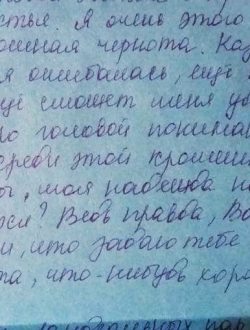 стья. Я очень этого
чернота. Каз
я ошибалась, ещё
ещё сможет меня у
о головой понима
среди этой кромеш
ы, моя надежда н
тся? Ведь правда, Ва
и, что задаю тебе
та, что-нибудь хор